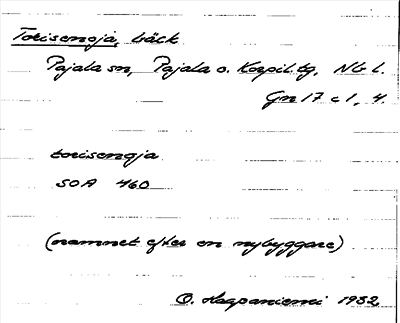 Torisenoja, bäck
Pajala sn, Pajala o. Korpil. tg, Nb l.
Gn 17 c 1, 4.
torisenoja
SOA 460
(namnet efter en nybyggare)
O. Haapaniemi 1932